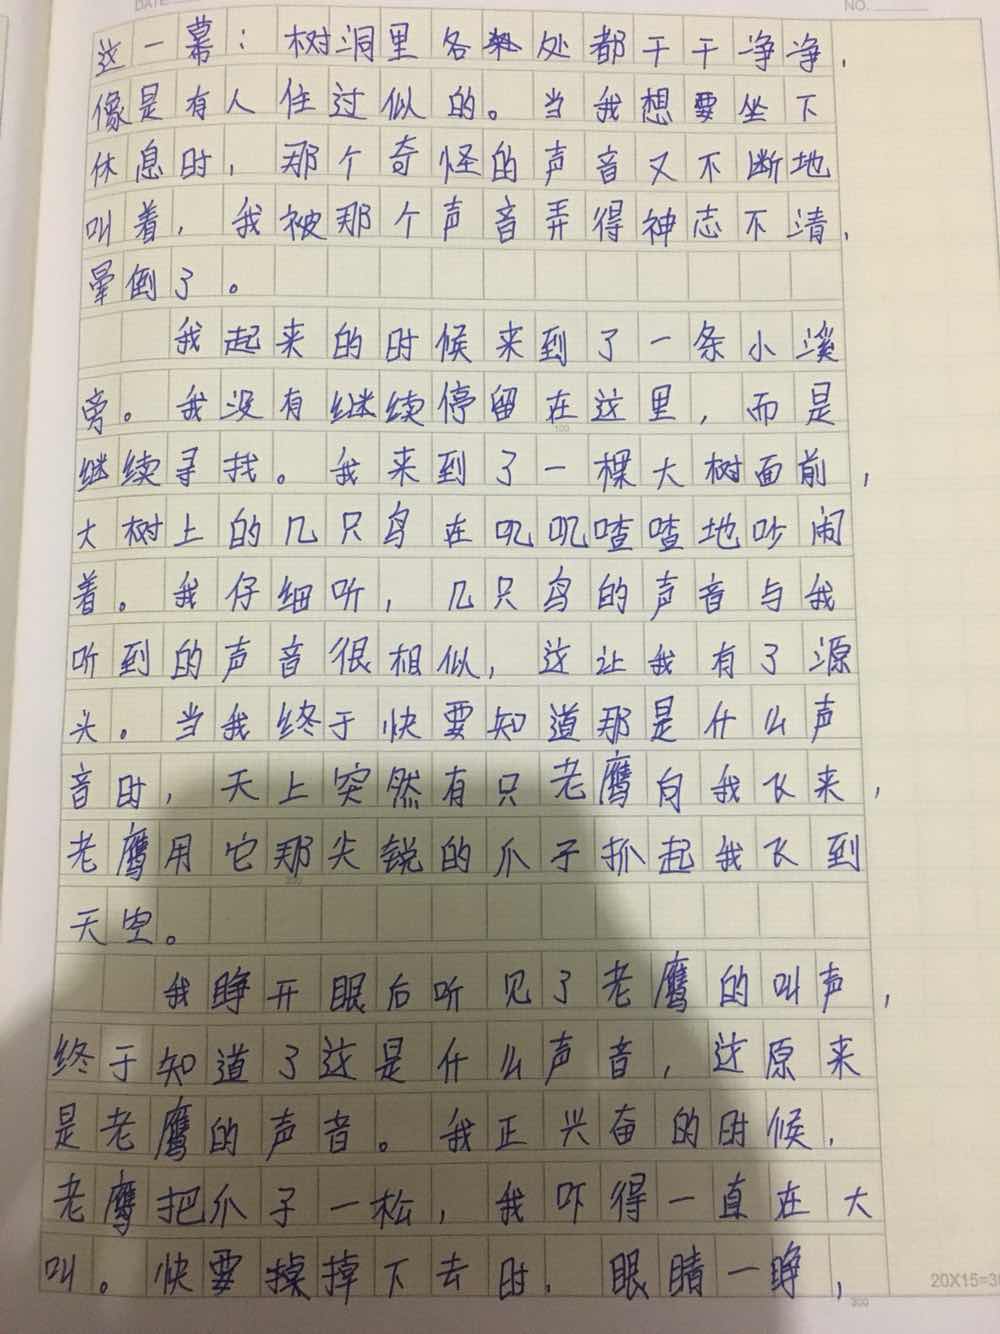 DATE
NO.
这一幕：树洞里各处都干干净净，
像是有人住过似的。当我想要坐下
休息时，那个奇怪的声音又不断地
叫着，我被那个声音弄得神志不清，
晕倒了。
我起来的时候来到了一条小溪
旁。我没有继续停留在这里，而是
继续寻找。我来到了一棵大树面前，
大树上的几只鸟在叽叽喳喳地吵闹
100
着。我仔细听，几只鸟的声音与我
听到的声音很相似，这让我有了源
头。当我终于快要知道那是什么声
音时，天上突然有只老鹰向我飞来，
老鹰用它那尖锐的爪子抓起我飞到
200
天空。
我睁开眼后听见了老鹰的叫声，
终于知道了这是什么声音，这原来
是老鹰的声音。我正兴奋的时候，
老鹰把爪子一松，我吓得一直在大
叫。快要掉掉下去时，眼睛一睁，
300
20X15=3